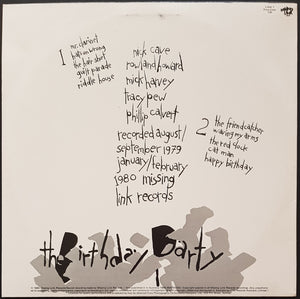 1
mr. clarinet
hats on wrong
the hair shirt
guilt parade
riddle house
nick cave
rowland howard
mick harvey
tracy pew
phillip calvert
recorded august/
september 1979
january/february
1980 missing
link records
2
the friendcatcher
waving my arms
the red clock
cat man
happy birthday
the Birthday Party